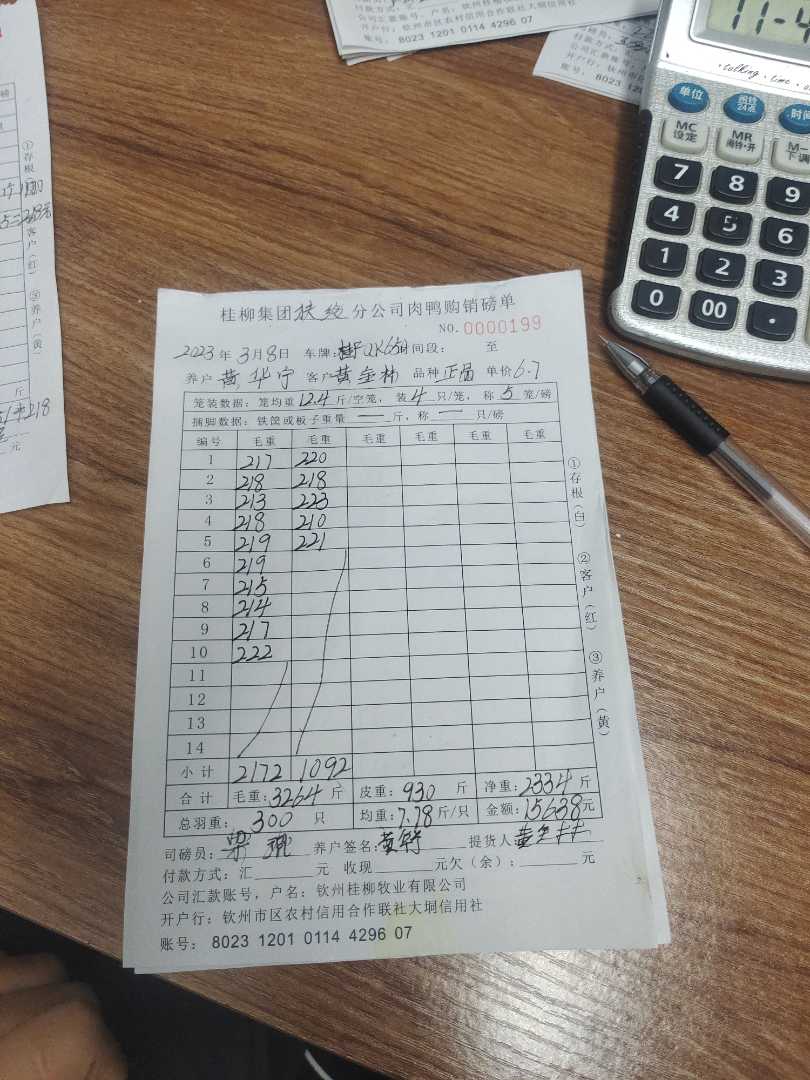 桂柳集团扶绥分公司肉鸭购销磅单
NO. 0000199
2023年3月8日 车牌: 时间段: 至
养户 黄华宁 客户 黄全林 品种 正苗 单价 6.7
笼装数据: 笼均重 12.4 斤/空笼, 装 4 只/笼, 称 5 笼/磅
捕脚数据: 铁筐或板子重量 — 斤, 称 — 只/磅
编号 毛重 毛重 毛重 毛重 毛重 毛重
1 217 220
2 218 218
3 213 223
4 218 210
5 219 221
6 219
7 215
8 214
9 217
10 222
11
12
13
14
小计 2172 1092
合计 毛重: 3264 斤 皮重: 930 斤 净重: 2334 斤
总羽重: 300 只 均重: 7.78 斤/只 金额: 15638 元
司磅员: 养户签名: 提货人 黄全林
付款方式: 汇 元 收现 元欠(余): 元
公司汇款账号, 户名: 钦州桂柳牧业有限公司
开户行: 钦州市区农村信用合作联社大垌信用社
账号: 8023 1201 0114 4296 07
①存根(白)
②客户(红)
③养户(黄)
开户行: 钦州市区农村信用合作联社大垌信用社
账号: 8023 1201 0114 4296 07
账号: 8023 120
①存根
客户(红)
③养户(黄)
斤
元
11-4
talking · time
单位
时间
MC
设定
MR
闹铃·开
M-
7 8 9
4 5 6
1 2 3
0 00 .